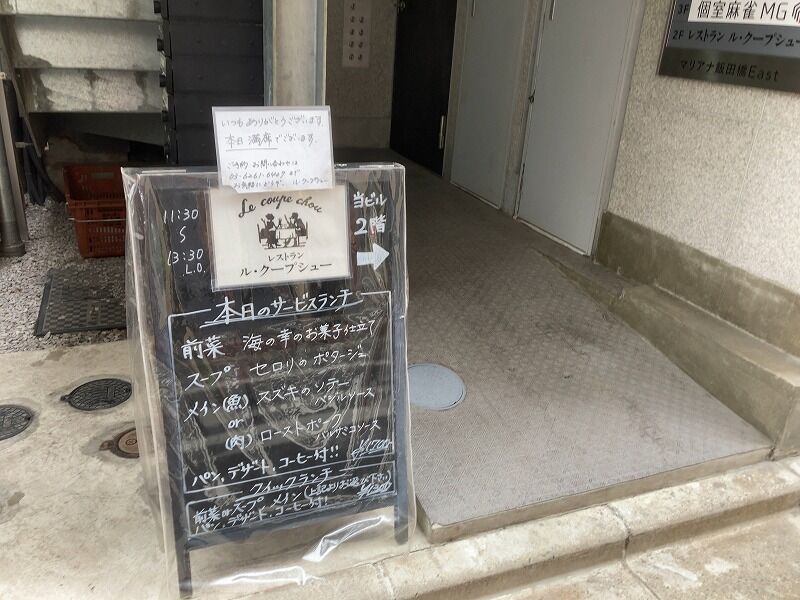 3F 個室麻雀 MG
2F レストラン ル・クープシュー
マリアナ飯田橋East
いつもありがとうございます。
本日 満席でございます。
ご予約 お問い合わせは
03-6261-6409 まで
お気軽にどうぞ。 ル・クープシュー
11:30
S
13:30
L.O.
Le coupe chou
レストラン
ル・クープシュー
当ビル
2階
→
本日のサービスランチ
前菜 海の幸のお菓子仕立て
スープ セロリのポタージュ
メイン(魚) スズキのソテー
バジルソース
or
(肉) ローストポーク
バルサミコソース
パン、デザート、コーヒー付!! ¥1700
クイックランチ
前菜orスープ メイン(上記よりお選び下さい)
パン、デザート、コーヒー付!! ¥1300